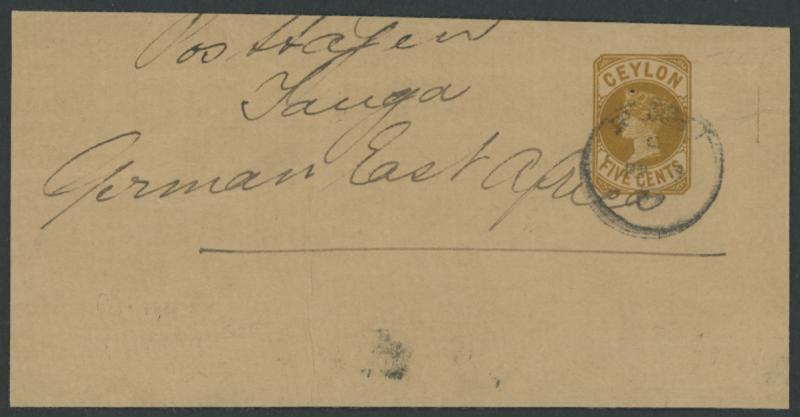 Postlagern
Tanga
German East Africa
CEYLON
FIVE CENTS